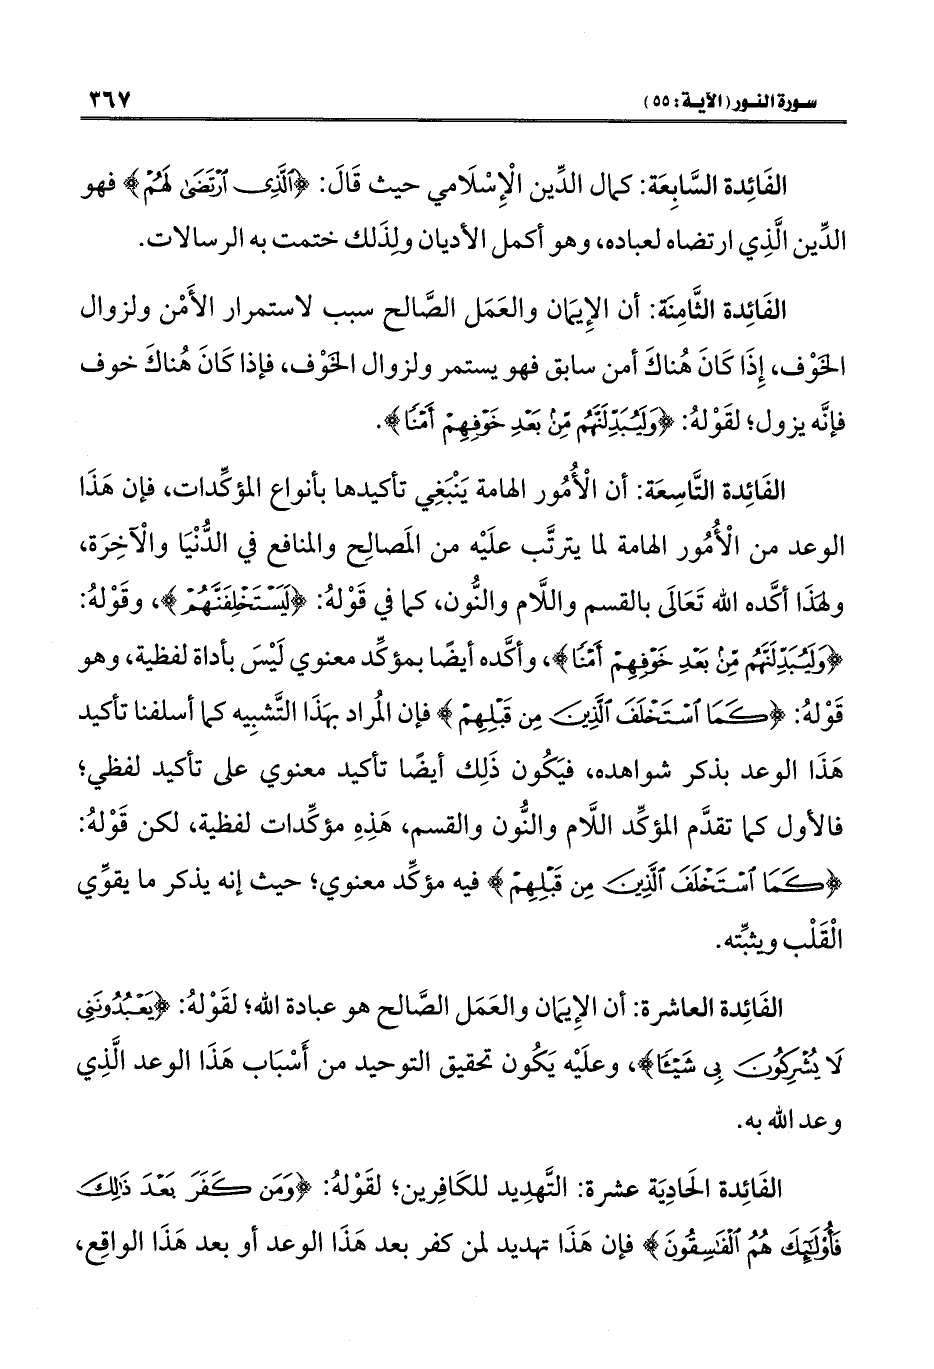 سورة النور (الآية: ٥٥)
٣٦٧
الفَائِدة السَّابِعَة: كمال الدِّين الْإِسْلَامي حيث قَالَ: ﴿ٱلَّذِى ٱرْتَضَىٰ لَهُمْ﴾ فهو
الدِّين الَّذِي ارتضاه لعباده، وهو أكمل الأديان ولِذَلك ختمت به الرسالات.
الفَائِدة الثَّامِنَة: أن الإِيمَان والعَمَل الصَّالح سبب لاستمرار الأَمْن ولزوال
الخَوْف، إِذَا كَانَ هُناكَ أمن سابق فهو يستمر ولزوال الخَوْف، فإذا كَانَ هُناكَ خوف
فإنَّه يزول؛ لقَوْلهُ: ﴿وَلَيُبَدِّلَنَّهُم مِّنۢ بَعْدِ خَوْفِهِمْ أَمْنًا﴾.
الفَائِدة التَّاسِعَة: أن الْأُمُور الهامة يَنْبَغِي تأكيدها بأنواع المؤكِّدات، فإن هَذَا
الوعد من الْأُمُور الهامة لما يترتَّب علَيْه من المَصالِح والمنافع في الدُّنْيَا والْآخِرَة،
ولهَذَا أكَّده الله تَعَالَى بالقسم واللَّام والنُّون، كما في قَوْلهُ: ﴿لَيَسْتَخْلِفَنَّهُمْ﴾، وقَوْلهُ:
﴿وَلَيُبَدِّلَنَّهُم مِّنۢ بَعْدِ خَوْفِهِمْ أَمْنًا﴾، وأكَّده أيضًا بمؤكِّد معنوي لَيْسَ بأداة لفظية، وهو
قَوْلهُ: ﴿كَمَا ٱسْتَخْلَفَ ٱلَّذِينَ مِن قَبْلِهِمْ﴾ فإن المُراد بهَذَا التَّشبِيه كما أسلفنا تأكيد
هَذَا الوعد بذكر شواهده، فيَكُون ذَلِك أيضًا تأكيد معنوي على تأكيد لفظي؛
فالأول كما تقدَّم المؤكِّد اللَّام والنُّون والقسم، هَذِهِ مؤكِّدات لفظية، لكن قَوْلهُ:
﴿كَمَا ٱسْتَخْلَفَ ٱلَّذِينَ مِن قَبْلِهِمْ﴾ فيه مؤكِّد معنوي؛ حيث إنه يذكر ما يقوِّي
الْقَلْب ويثبِّته.
الفَائِدة العاشرة: أن الإِيمَان والعَمَل الصَّالح هو عبادة الله؛ لقَوْلهُ: ﴿يَعْبُدُونَنِى
لَا يُشْرِكُونَ بِى شَيْـًٔا﴾، وعلَيْه يَكُون تحقيق التوحيد من أَسْبَاب هَذَا الوعد الَّذِي
وعد الله به.
الفَائِدة الحَادِيَة عشرة: التَّهديد للكَافِرين؛ لقَوْلهُ: ﴿وَمَن كَفَرَ بَعْدَ ذَٰلِكَ
فَأُو۟لَـٰٓئِكَ هُمُ ٱلْفَـٰسِقُونَ﴾ فإن هَذَا تهديد لمن كفر بعد هَذَا الوعد أو بعد هَذَا الواقِع،